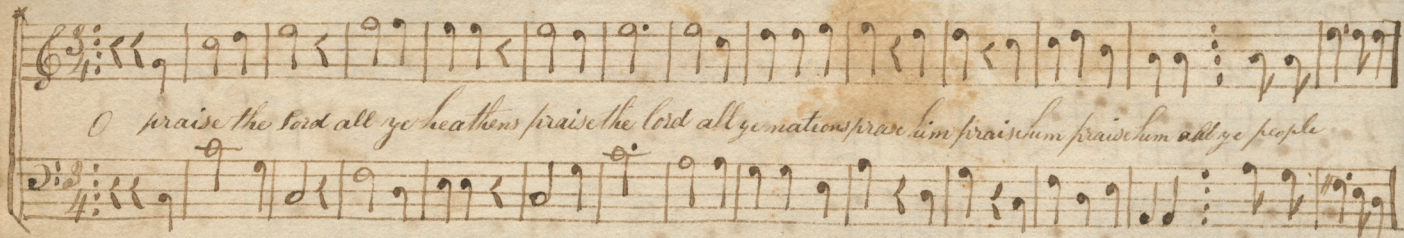 3/4
O praise the Lord all ye heathens praise the lord all ye nations prase him praise him praise him all ye people
3/4